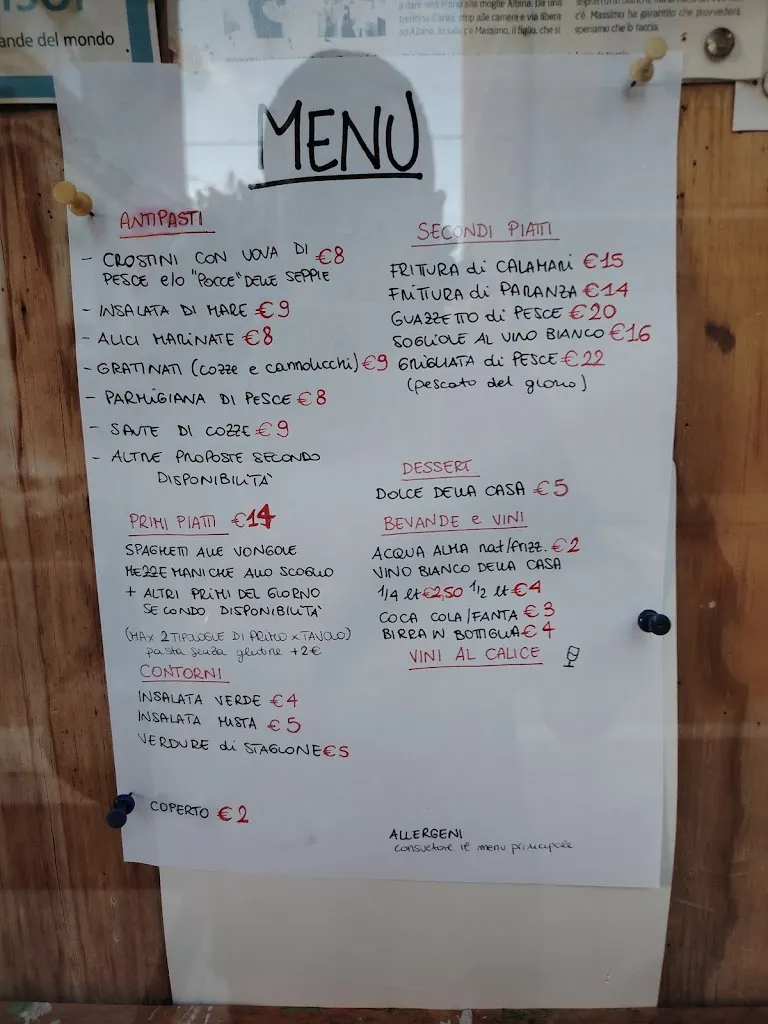 ande del mondo
a dare una mano alla moglie Albina. Da una
stop alle camere e via libera
ad Albina. In sala c'è Massimo, il figlio, che si
c'è. Massimo ha garantito che pioverà,
speriamo che lo faccia.
MENU
ANTIPASTI
- CROSTINI CON UOVA DI €8
PESCE e/o "POCCE" DELLE SEPPIE
- INSALATA DI MARE €9
- ALICI MARINATE €8
- GRATINATI (cozze e cannolicchi) €9
- PARMIGIANA DI PESCE €8
- SAUTE DI COZZE €9
- ALTRE PROPOSTE SECONDO
DISPONIBILITA'
PRIMI PIATTI €14
SPAGHETTI ALLE VONGOLE
MEZZE MANICHE ALLO SCOGLIO
+ ALTRI PRIMI DEL GIORNO
SECONDO DISPONIBILITA'
(MAX 2 TIPOLOGIE DI PRIMO x TAVOLO)
pasta senza glutine +2€
CONTORNI
INSALATA VERDE €4
INSALATA MISTA €5
VERDURE di STAGIONE €5
COPERTO €2
SECONDI PIATTI
FRITTURA di CALAMARI €15
FRITTURA di PARANZA €14
GUAZZETTO di PESCE €20
SOGLIOLE AL VINO BIANCO €16
GRIGLIATA di PESCE €22
(pescato del giorno)
DESSERT
DOLCE DELLA CASA €5
BEVANDE e VINI
ACQUA ALMA nat/frizz. €2
VINO BIANCO DELLA CASA
1/4 lt €2,50 1/2 lt €4
COCA COLA/FANTA €3
BIRRA IN BOTTIGLIA €4
VINI AL CALICE
ALLERGENI
consultare il menu principale